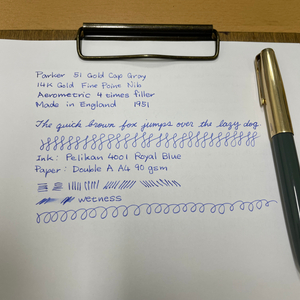 Parker 51 Gold Cap Gray
14K Gold Fine Point Nib
Aerometric 4 times filler
Made in England 1951
The quick brown fox jumps over the lazy dog
Ink: Pelikan 4001 Royal Blue
Paper: Double A A4 90 gsm
wetness